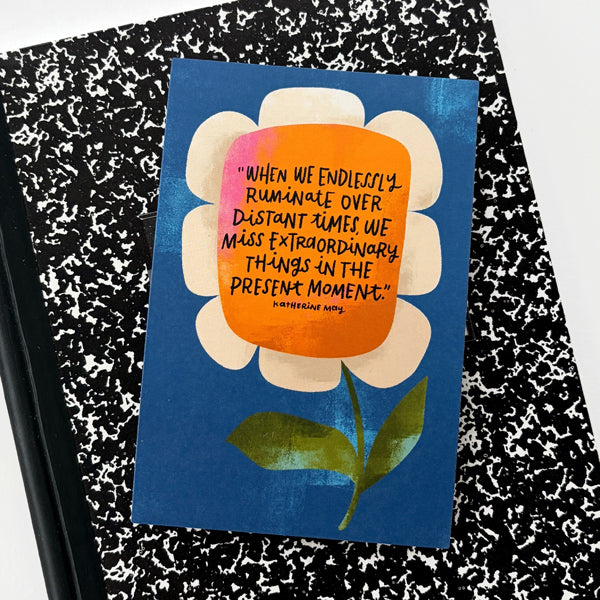 "WHEN WE ENDLESSLY
RUMINATE OVER
DISTANT TIMES, WE
MISS EXTRAORDINARY
THINGS IN THE
PRESENT MOMENT."
KATHERINE MAY